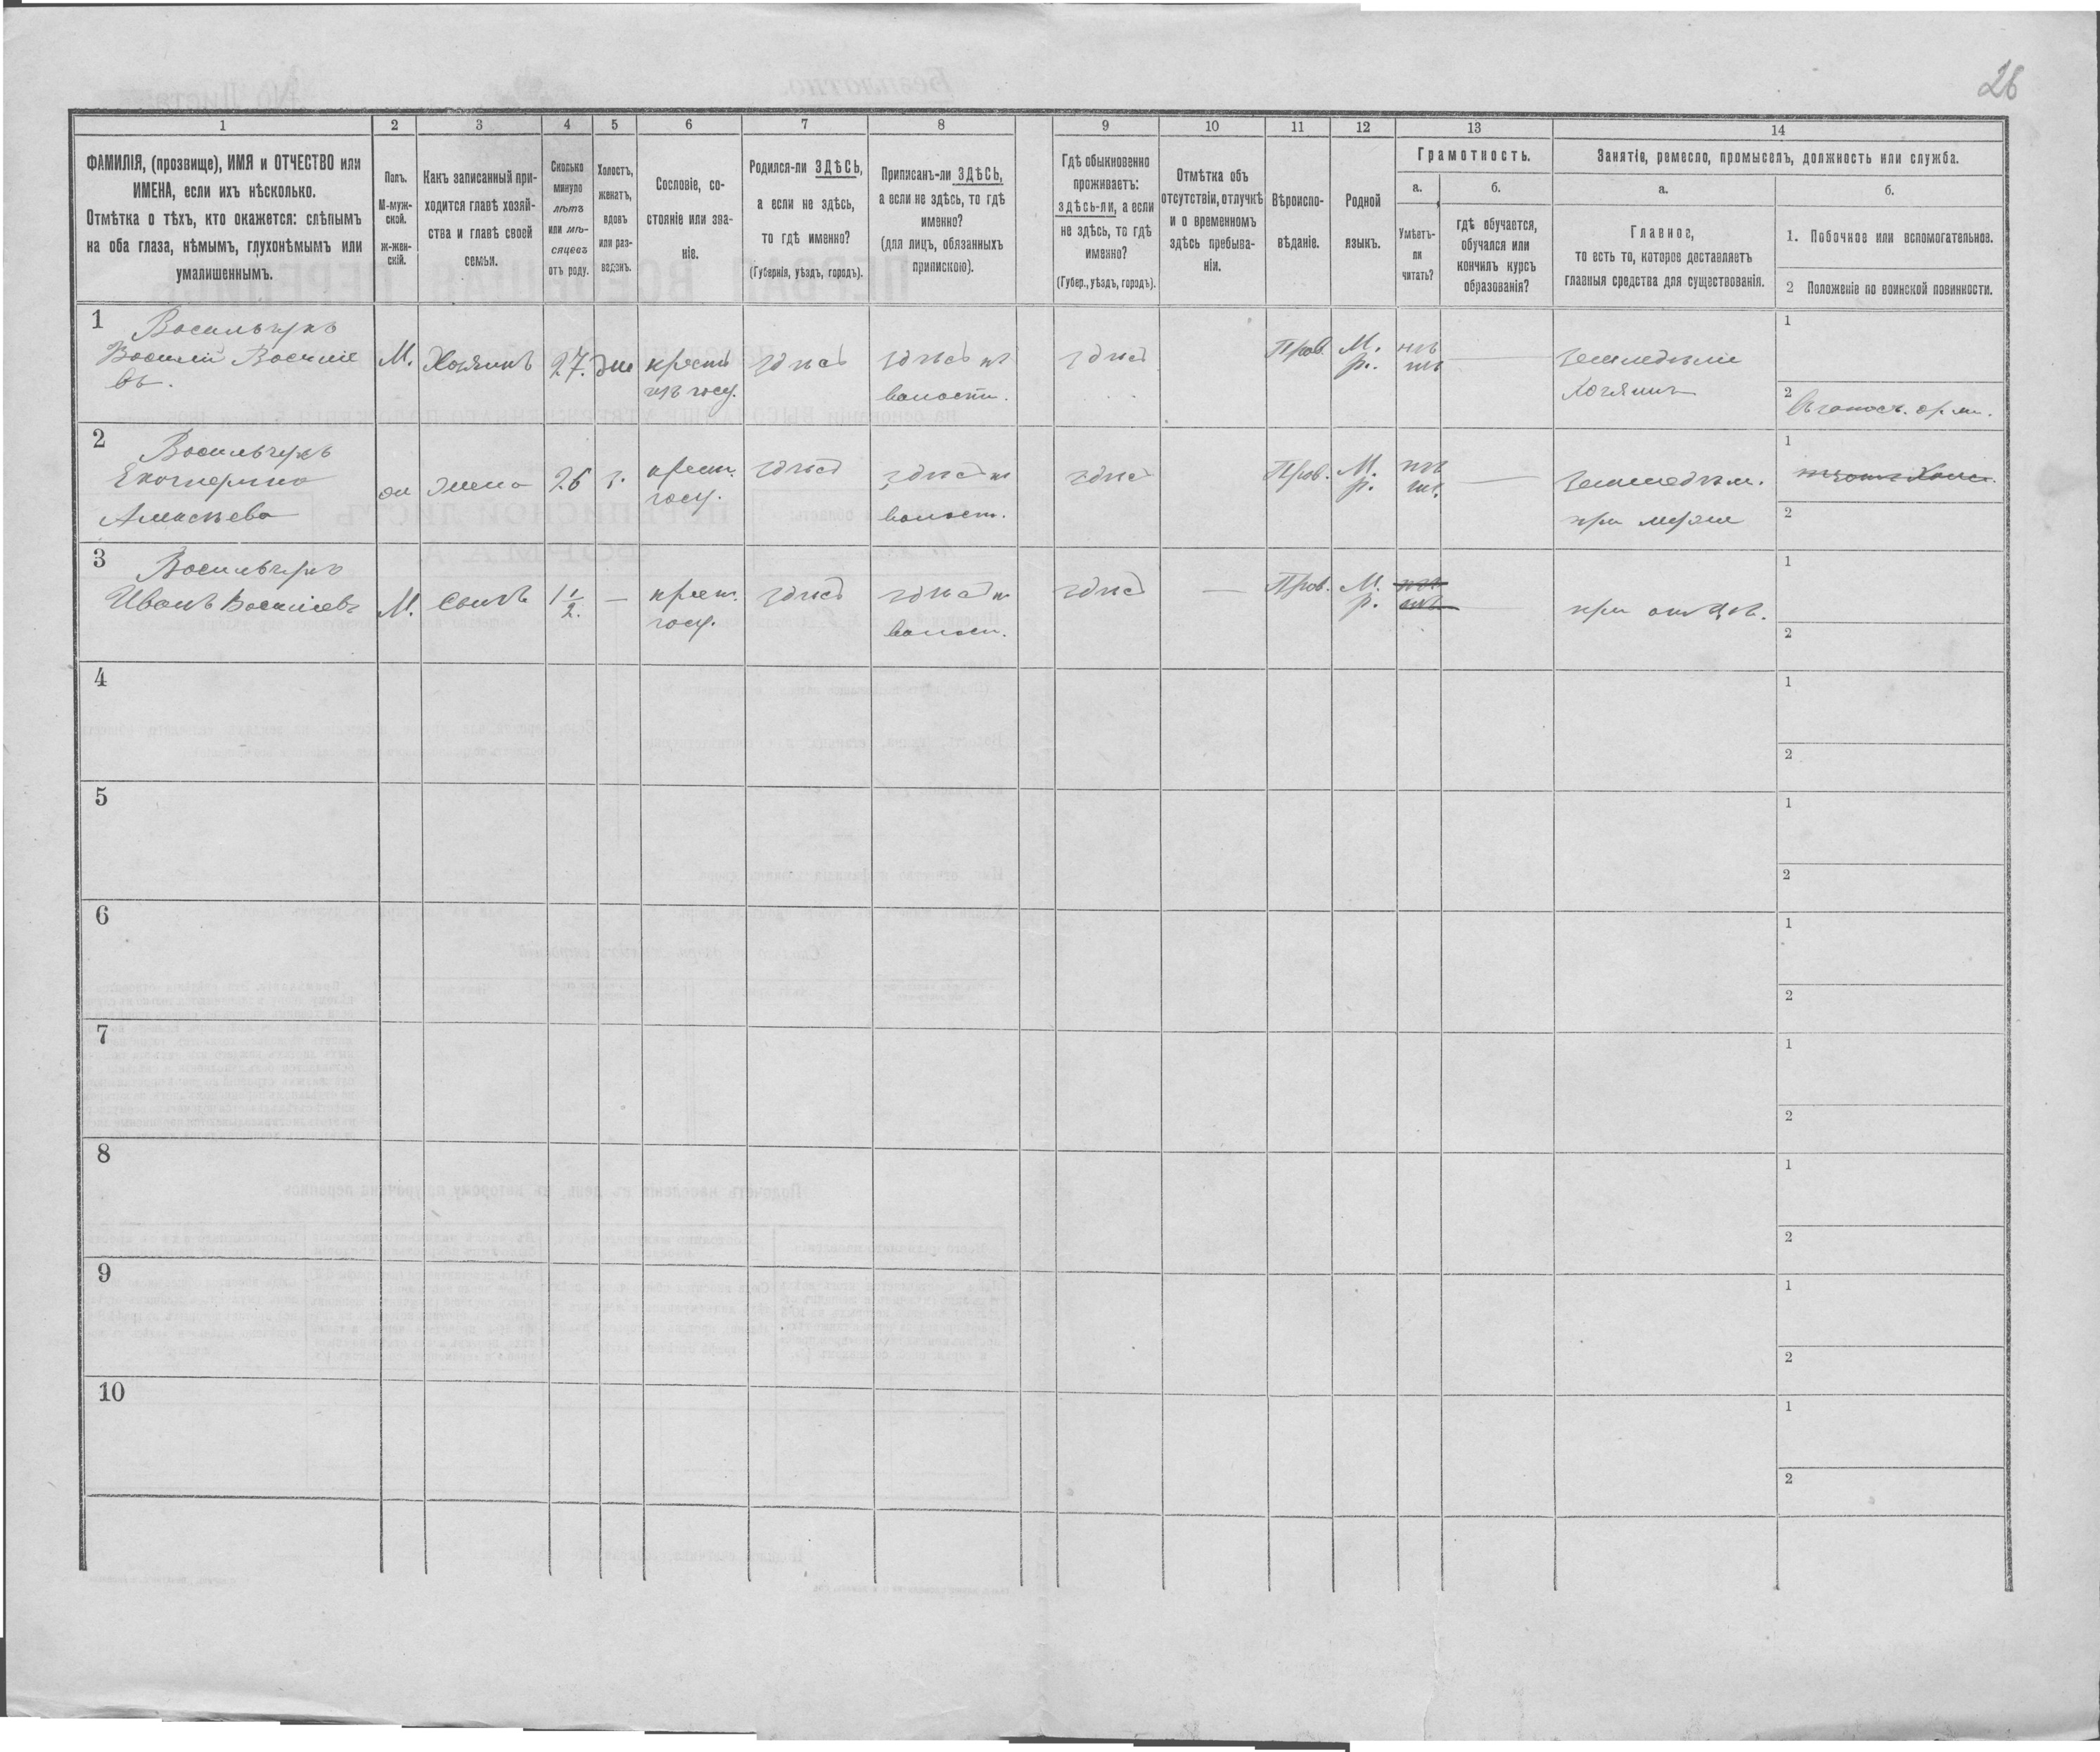 26
1 2 3 4 5 6 7 8 9 10 11 12 13 14
ФАМИЛІЯ, (прозвище), ИМЯ и ОТЧЕСТВО или
ИМЕНА, если ихъ нѣсколько.
Отмѣтка о тѣхъ, кто окажется: слѣпымъ
на оба глаза, нѣмымъ, глухонѣмымъ или
умалишеннымъ.
Полъ.
М-муж-
ской.
ж-жен-
скій.
Какъ записанный при-
ходится главѣ хозяй-
ства и главѣ своей
семьи.
Сколько
минуло
лѣтъ
или мѣ-
сяцевъ
отъ роду.
Холостъ,
женатъ,
вдовъ
или раз-
веденъ.
Сословіе, со-
стояніе или зва-
ніе.
Родился-ли ЗДѢСЬ,
а если не здѣсь,
то гдѣ именно?
(Губернія, уѣздъ, городъ).
Приписанъ-ли ЗДѢСЬ,
а если не здѣсь, то гдѣ
именно?
(для лицъ, обязанныхъ
припискою).
Гдѣ обыкновенно
проживаетъ:
здѣсь-ли, а если
не здѣсь, то гдѣ
именно?
(Губер., уѣздъ, городъ).
Отмѣтка объ
отсутствіи, отлучкѣ
и о временномъ
здѣсь пребыва-
ніи.
Вѣроиспо-
вѣданіе.
Родной
языкъ.
Грамотность.
а.
Умѣетъ-
ли
читать?
б.
гдѣ обучается,
обучался или
кончилъ курсъ
образованія?
Занятіе, ремесло, промыселъ, должность или служба.
а.
Главное,
то есть то, которое доставляетъ
главныя средства для существованія.
б.
1. Побочное или вспомогательное.
2 Положеніе по воинской повинности.
1
Васильчукъ
Василій Василіе
въ.
М.
Хозяинъ
27.
же
крест
изъ госу.
здѣсь
здѣсь къ
волости.
здѣсь
Прав.
М.
р.
нѣ
тъ
земледѣліе
Хозяинъ
1
2
2
Васильчукъ
Екатерина
Алексѣева
же
жена
26
з.
крест.
госу.
здѣсь
здѣсь къ
волост.
здѣсь
Прав.
М.
р.
нѣ
тъ.
земледѣл.
при мужѣ
1
2
3
Васильчукъ
Иванъ Васильевъ
М.
сынъ
1 1/2.
—
крест.
госу.
здѣсь
здѣсь къ
волост.
здѣсь
—
Прав.
М.
р.
нѣ
тъ
при отцѣ.
1
2
4
1
2
5
1
2
6
1
2
7
1
2
8
1
2
9
1
2
10
1
2